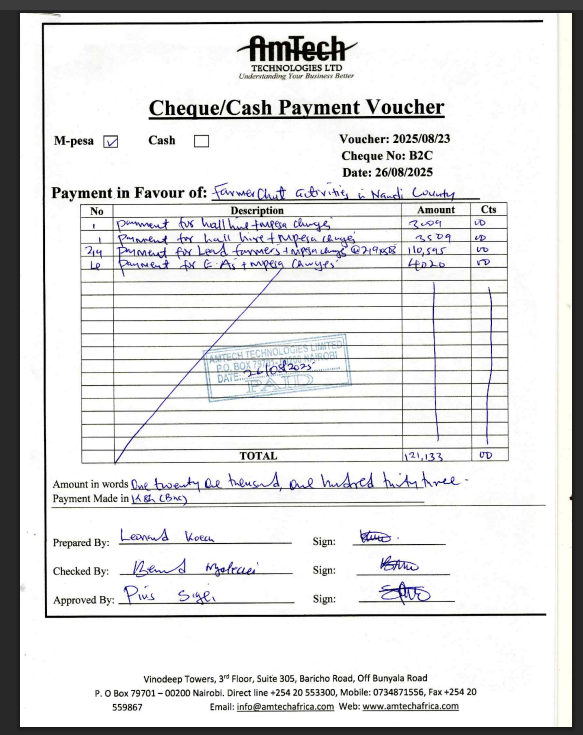 AmTech
TECHNOLOGIES LTD
Understanding Your Business Better
Cheque/Cash Payment Voucher
M-pesa ☑ Cash ☐ Voucher: 2025/08/23
Cheque No: B2C
Date: 26/08/2025
Payment in Favour of: FarmerChat activities in Nandi County
No Description Amount Cts
1 payment for hall hire + mpesa charges 3009 00
1 payment for hall hire + Mpesa charges 3509 00
payment for Lead farmers + mpesa charges 110,595 00
payment for E.As + Mpesa charges 4020 00
AMTECH TECHNOLOGIES LIMITED
P.O. BOX 79701-00200 NAIROBI
DATE: 26/08/2025
PAID
TOTAL 121,133 00
Amount in words One twenty one thousand, one hundred thirty three.
Payment Made in Ksh (B2C)
Prepared By: Leonard Koech Sign:
Checked By: Sign:
Approved By: Pius Sign:
Vinodeep Towers, 3rd Floor, Suite 305, Baricho Road, Off Bunyala Road
P. O Box 79701 – 00200 Nairobi. Direct line +254 20 553300, Mobile: 0734871556, Fax +254 20
559867 Email: info@amtechafrica.com Web: www.amtechafrica.com